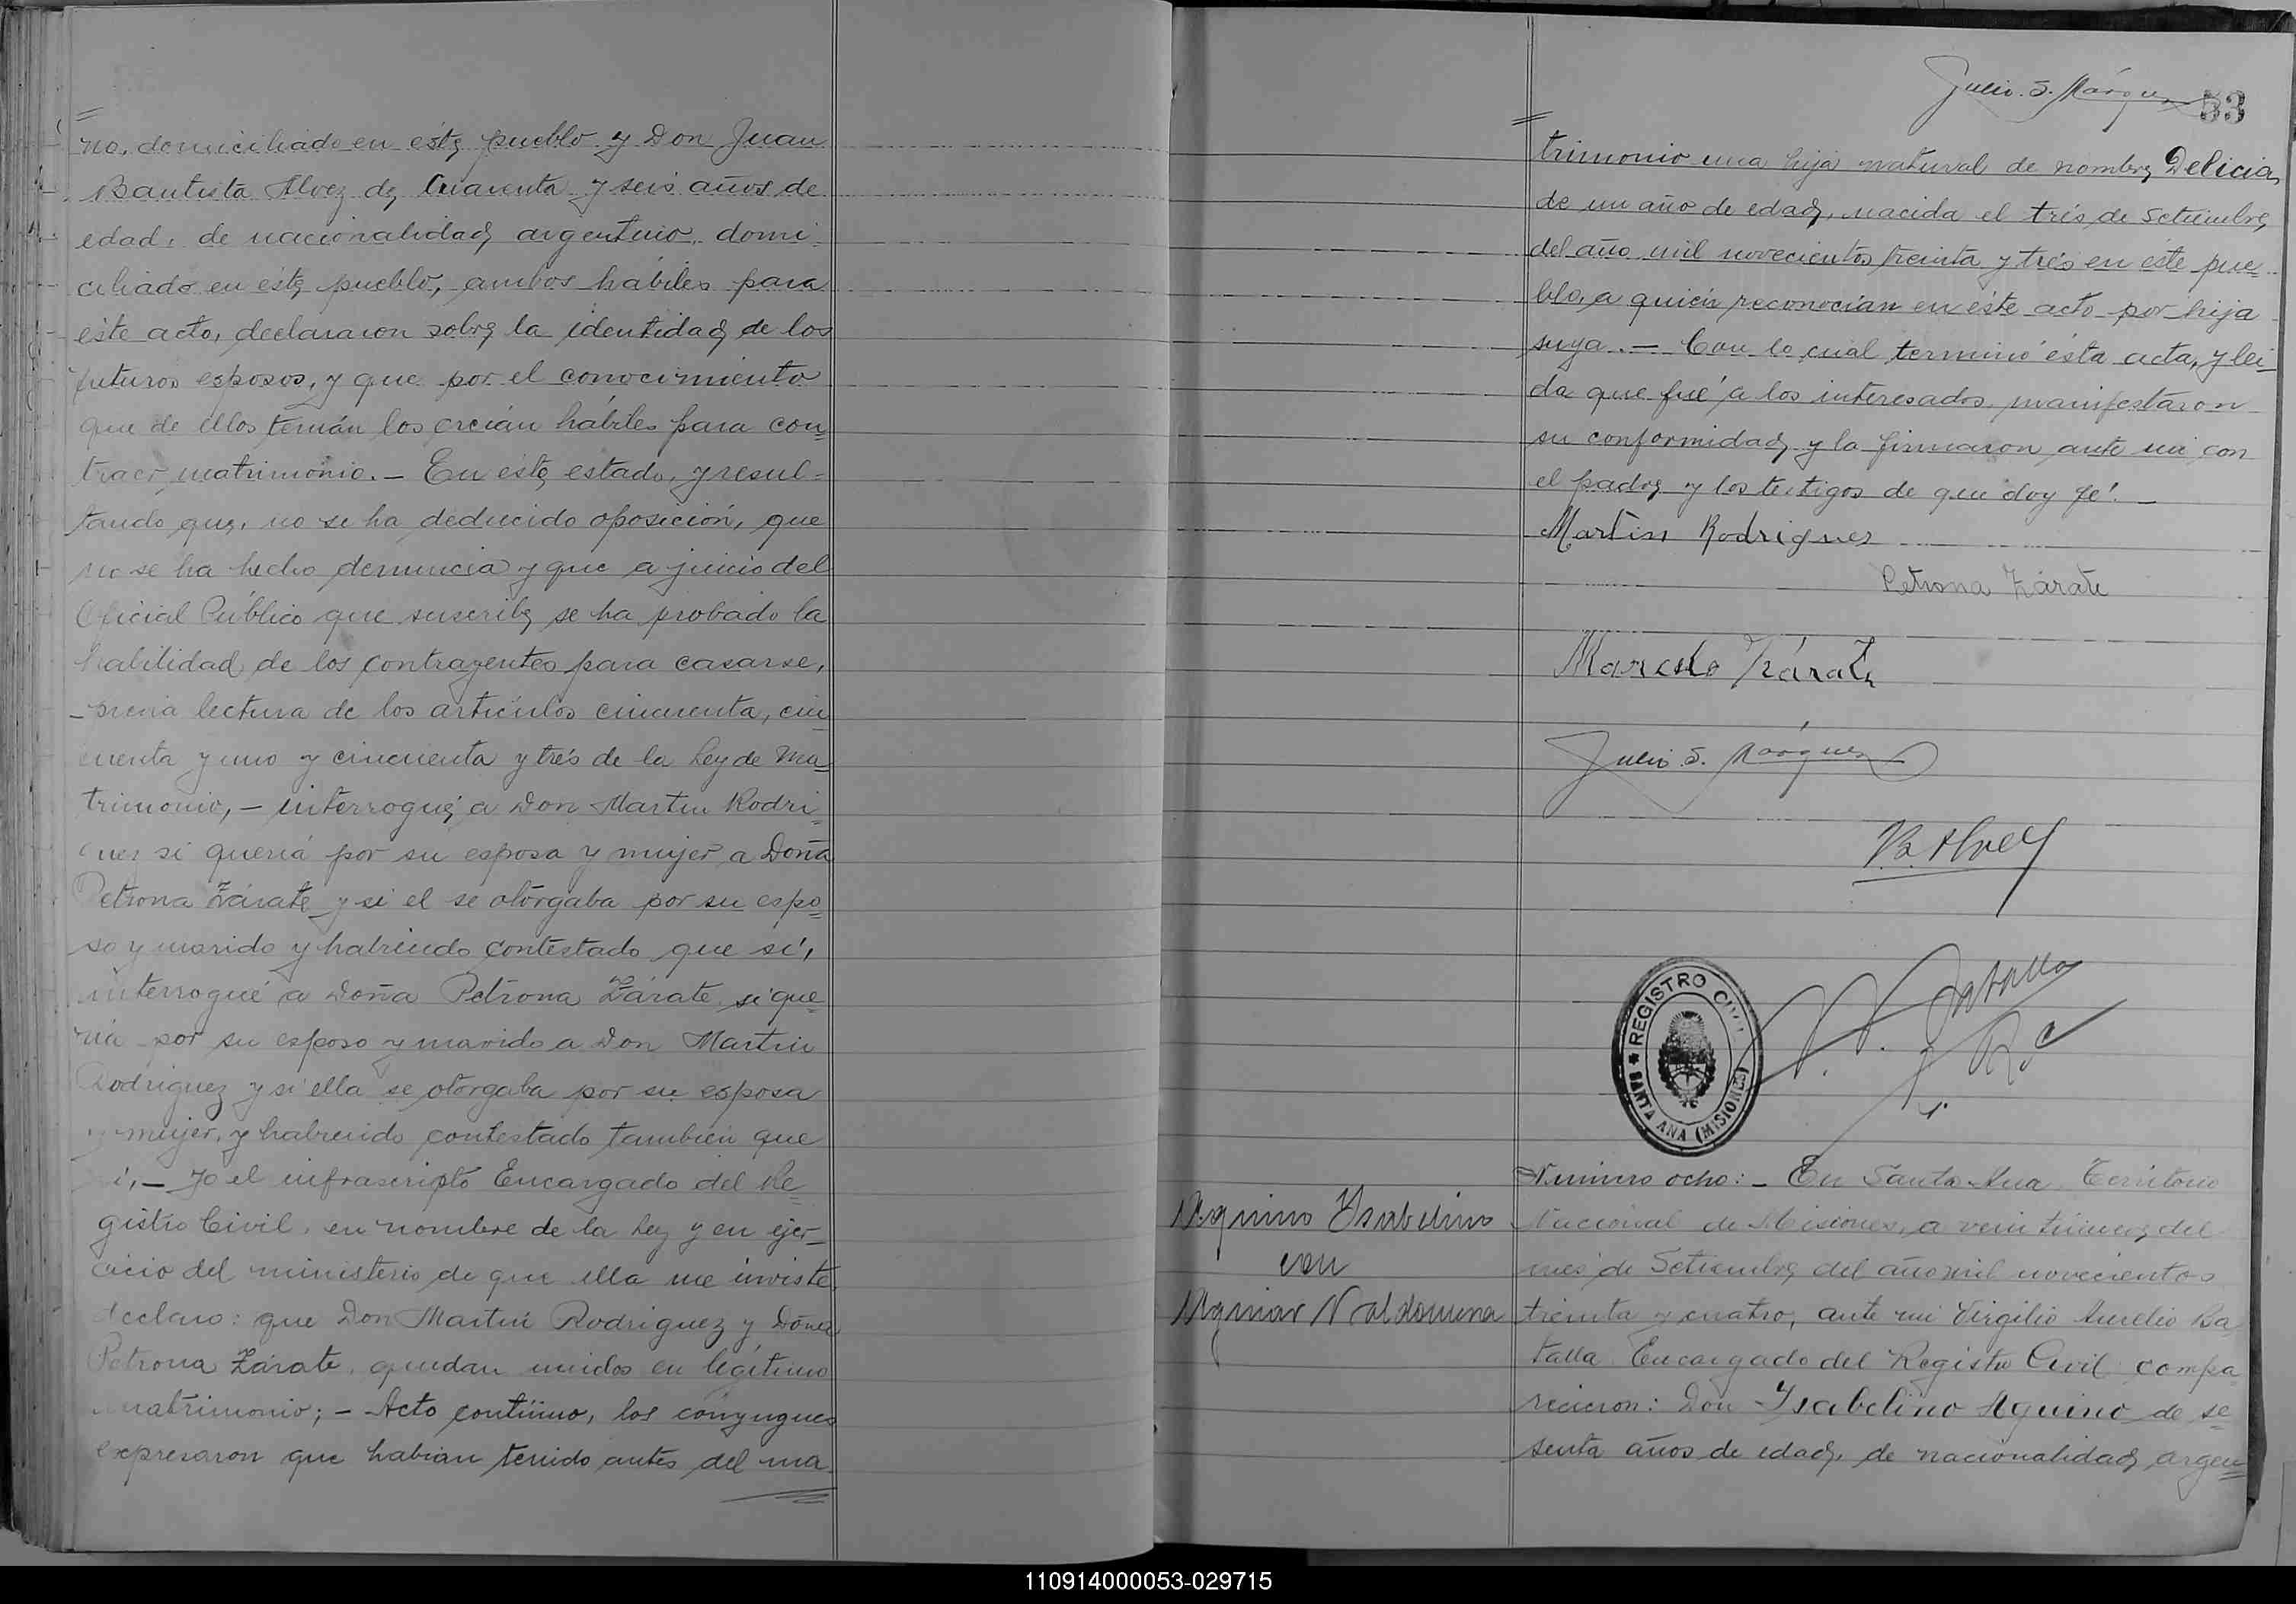 no, domiciliado en éste pueblo y Don Juan
Bautista Alvez de cuarenta y seis años de
edad, de nacionalidad argentino, domi-
ciliado en éste pueblo, ambos hábiles para
éste acto, declararon sobre la identidad de los
futuros esposos, y que por el conocimiento
que de ellos tenián los creián hábiles para con-
traer matrimonio.- En éste estado, y resul=
tando que, no se ha deducido oposición, que
no se ha hecho denuncia y que a juicio del
Oficial Público que suscribe se ha probado la
habilidad de los contrayentes para casarse,
previa lectura de los artículos cincuenta, cin
cuenta y uno y cincuenta y trés de la Ley de Ma-
trimonio,- interrogué a Don Martin Rodri=
guez si queriá por su esposa y mujer a Doña
Petrona Zárate y si el se otorgaba por su espo=
so y marido y habiendo contestado que sí,
interrogué a Doña Petrona Zárate si que=
riá por su esposo y marido a Don Martin
Rodriguez y si ella se otorgaba por su esposa
y mujer, y habiendo contestado tambien que
si,- Yo el infrascripto Encargado del Re=
gistro Civil, en nombre de la Ley y en ejer-
cicio del ministerio de que ella me inviste,
declaro: que Don Martin Rodriguez y Doña
Petrona Zárate, quedan unidos en legítimo
matrimonio;- Acto contínuo, los cónyugues
expresaron que habian tenido antes del ma=
Julio S. Márquez
53
trimonio una hija natural de nombre Delicia,
de un año de edad, nacida el trés de Setiembre
del año mil novecientos treinta y trés en éste pue=
blo, a quién reconocian en éste acto por hija
suya.- Con lo cual terminó ésta acta, y lei=
da que fué a los interesados manifestaron
su conformidad y la firmaron ante mi con
el padre y los testigos de que doy fé.-
Martin Rodrigues
Petrona Zárate
Marcelo Zárate
Julio S. Márquez
B. Alvez
V. A. Batalla
REGISTRO CIVIL
SANTA ANA (MISIONES)
Número ocho:- En Santa Ana, Territorio
Aquino Ysabelino
Nacional de Misiones, a veintinueve del
con
més de Setiembre del año mil novecientos
Aguiar Valdomera
treinta y cuatro, ante mi Virgilio Aurelio Ba
talla Encargado del Registro Civil compa
recieron: Don Ysabelino Aquino de se=
senta años de edad, de nacionalidad argen=
110914000053-029715